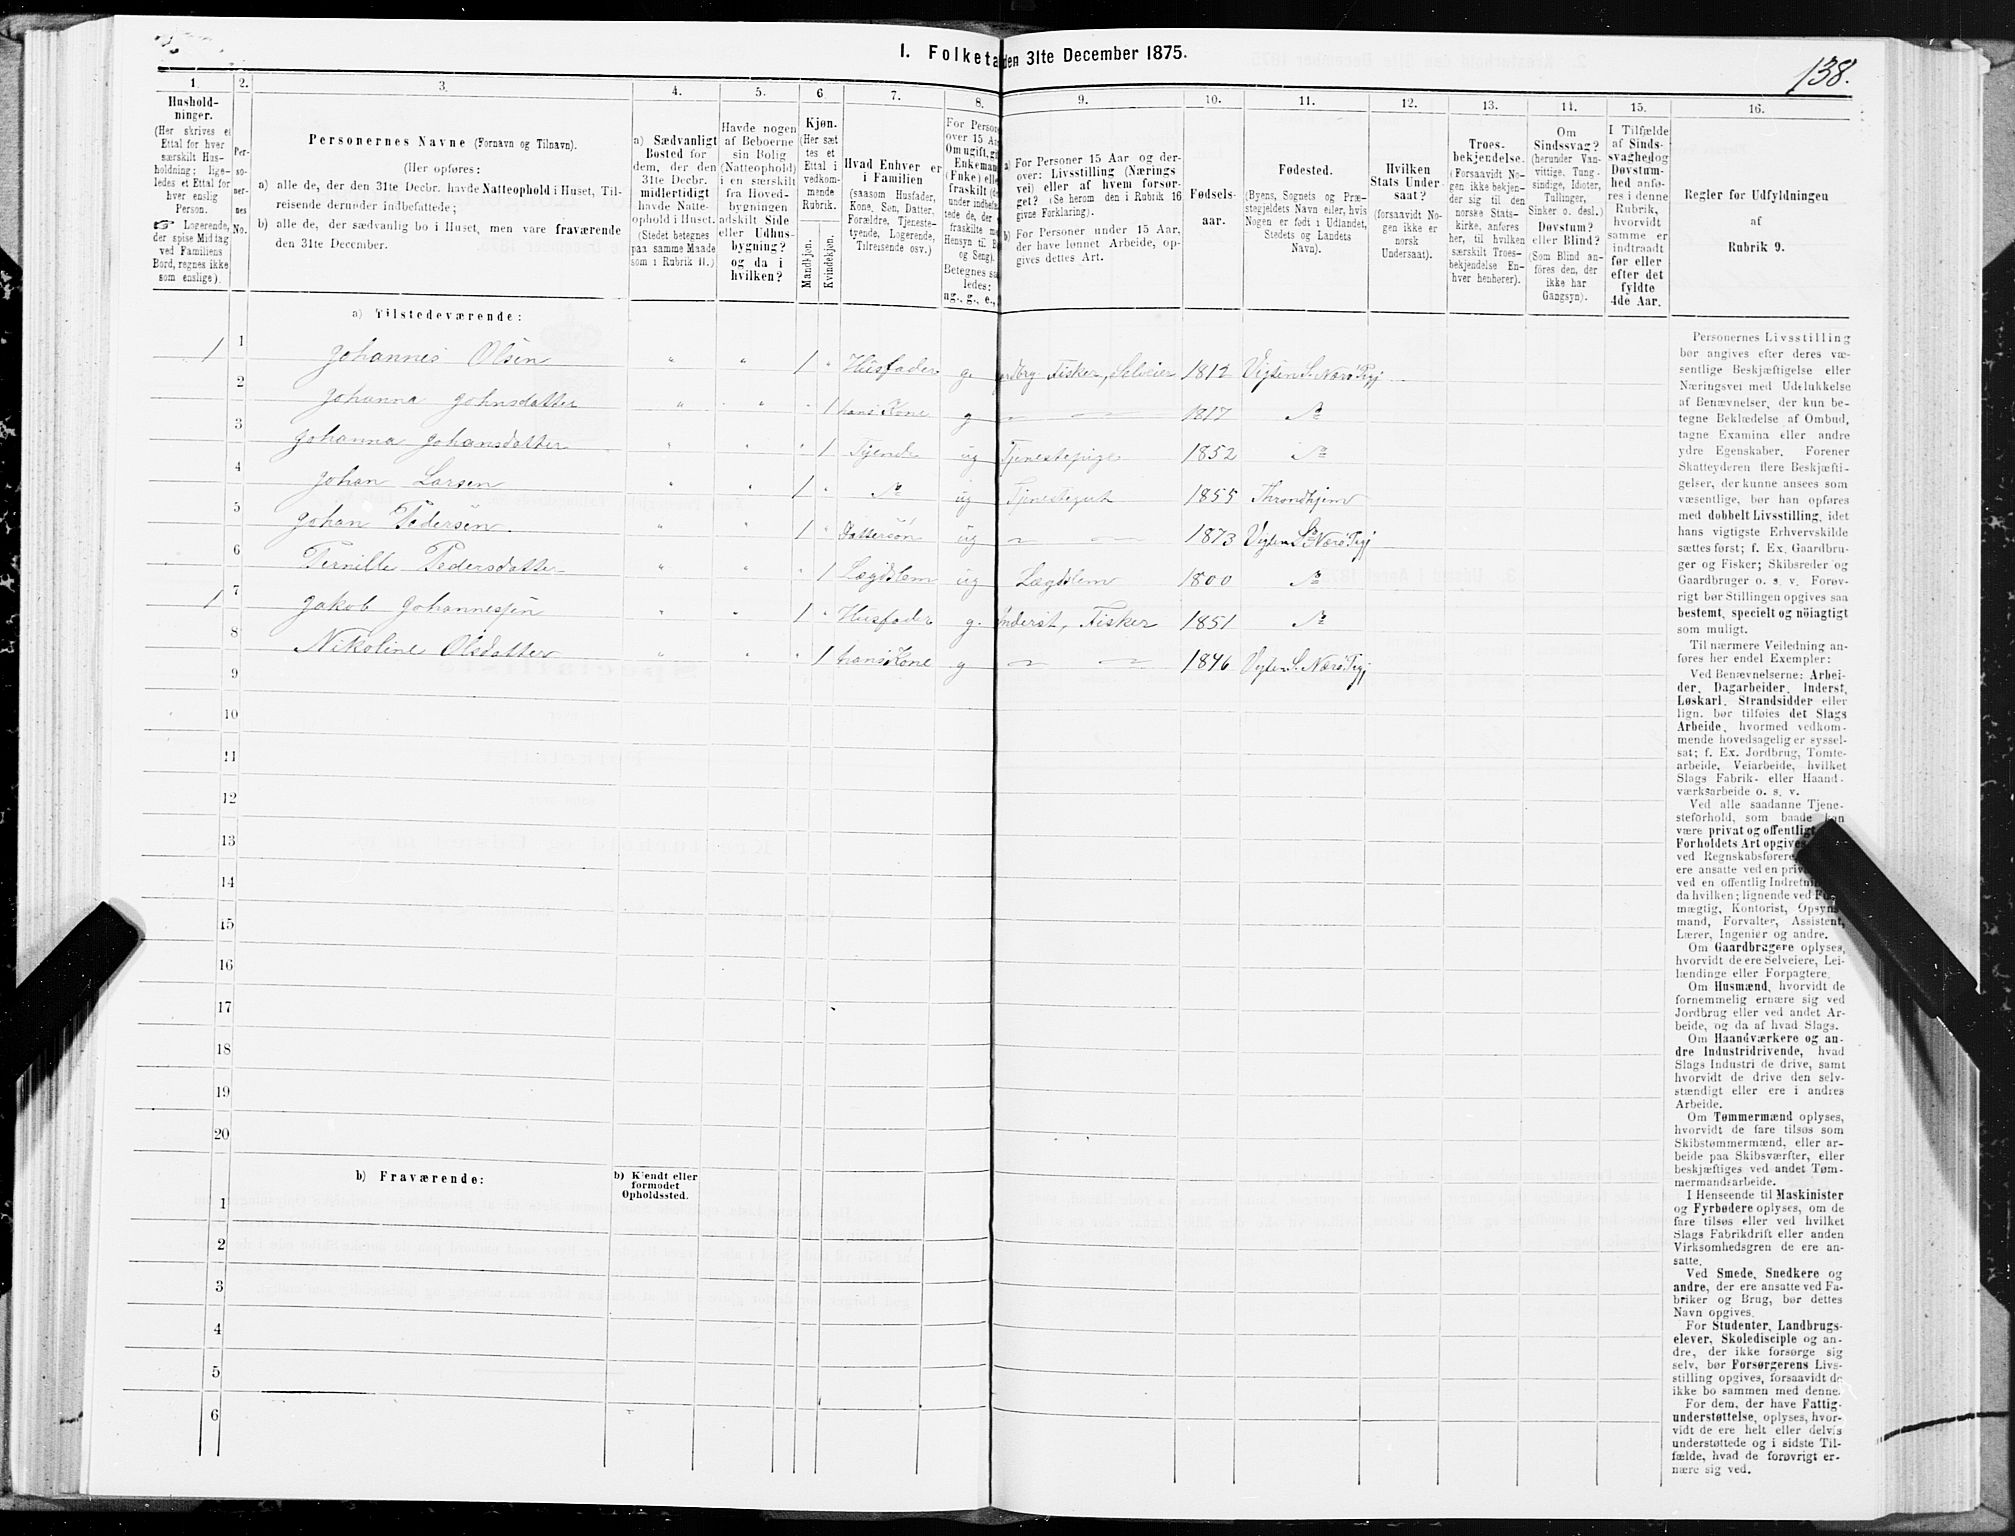 I. Folketa den 31te December 1875.
138.
1.
2.
3.
4.
5.
6
7.
8.
9.
10.
11.
12.
13.
14.
15.
16.
Hushold-
ninger.
(Her skrives et
Ettal for hver
særskilt Hus-
holdning; lige-
ledes et Ettal for
hver enslig
Person.
Logerende,
der spise Middag
ved Familiens
Bord, regnes ikke
som enslige).
Per-
so-
ner-
nes
No.
Personernes Navne (Fornavn og Tilnavn).
(Her opføres:
a) alle de, der den 31te Decbr. havde Natteophold i Huset, Til-
reisende derunder indbefattede;
b) alle de, der sædvanlig bo i Huset, men vare fraværende
den 31te December.
a) Sædvanligt
Bosted for
dem, der den
31te Decbr.
midlertidigt
havde Natte-
ophold i Huset.
(Stedet betegnes
paa samme Maade
som i Rubrik 11.)
Havde nogen
af Beboerne
sin Bolig
(Natteophold)
i en særskilt
fra Hoved-
bygningen
adskilt Side
eller Udhus-
bygning?
og da i
hvilken?
Kjøn.
(Her sæt
tes et
Ettal i
vedkom-
mende
Rubrik.
Mandkjøn.
Kvindekjøn.
Hvad Enhver er
i Familien
(saasom Husfader,
Kone, Søn, Datter,
Forældre, Tjeneste-
tyende, Logerende,
Tilreisende osv.)
For Person
over 15 Aa
Om ugift, gi
Enkeman
(Enke) elle
fraskilt
under indbefat
tede de, der
fraskilte m
Hensyn til B
og Seng).
Betegnes saa
ledes:
ug., g., e.,
a) For Personer 15 Aar og der-
over: Livsstilling (Nærings
vei) eller af hvem forsør-
get? (Se herom den i Rubrik 16
givne Forklaring).
b) For Personer under 15 Aar,
der have lønnet Arbeide, op-
gives dettes Art.
Fødsels-
aar.
Fødested.
(Byens, Sognets og Præ-
stegjeldets Navn eller, hvis
Nogen er født i Udlandet,
Stedets og Landets
Navn).
Hvilken
Stats Under-
saat?
(forsaavidt No-
gen ikke er
norsk
Undersaat).
Troes-
bekjendelse.
(Forsaavidt No-
gen ikke bekjen-
der sig til den
norske Stats-
kirke, anføres
her, til hvilken
særskilt Troes-
bekjendelse En-
hver henhører).
Om
Sindssvag?
(herunder Van-
vittige, Tung-
sindige, Idioter,
Tullinger,
Sinker o. desl.)
Døvstum?
eller Blind?
(Som Blind an-
føres den, der
ikke har
Gangsyn).
I Tilfælde
af Sinds-
svaghed og
Døvstum-
hed anfø-
res i denne
Rubrik,
hvorvidt
samme er
indtraadt
før eller
efter det
fyldte
4de Aar.
Regler for Udfyldningen
af
Rubrik 9.
a) Tilstedeværende:
1 1 Johannes Olsen " " 1 " Husfader g. Fisker, Selveier 1812 Vigten S. Nærø Pgj
2 Johanna Johnsdatter " " " 1 hans Kone g 1817 do
3 Johanna Johansdatter " " " 1 Tjende ug Tjenestepige 1852 do
4 Johan Larsen " " 1 " do ug Tjenestegut 1855 Throndhjem
5 Johan Pedersen " " 1 " Dattersøn ug 1873 Vigten S. Nærø Pgj
6 Pernille Pedersdatter " " " 1 Lægdslem ug Lægdslem 1800 do
1 7 Jakob Johannessen " " 1 " Husfader g. Inderst, Fisker 1851 do
8 Nikoline Olsdatter " " " 1 hans Kone g 1846 Vigten S. Nærø Pgj
9
10
11
12
13
14
15
16
17
18
19
20
b) Fraværende:
b) Kjendt eller
formodet
Opholdssted.
1
2
3
4
5
6
Personernes Livsstilling
bør angives efter deres væ-
sentlige Beskjæftigelse eller
Næringsvei med Udelukkelse
af Benævnelser, der kun be-
tegne Beklædelse af Ombud,
tagne Examina eller andre
ydre Egenskaber. Forener
Skatteyderen flere Beskjæfti-
gelser, der kunne ansees som
væsentlige, bør han opføres
med dobbelt Livsstilling, idet
hans vigtigste Erhvervskilde
sættes først; f. Ex. Gaardbru-
ger og Fisker; Skibsreder og
Gaardbruger o. s. v. Forøv-
rigt bør Stillingen opgives saa
bestemt, specielt og nøiagtigt
som muligt.
Til nærmere Veiledning an-
føres her endel Exempler:
Ved Benævnelserne: Arbei-
der, Dagarbeider, Inderst,
Løskarl, Strandsidder eller
lign. bør tilføies det Slags
Arbeide, hvormed vedkom-
mende hovedsagelig er syssel-
sat; f. Ex. Jordbrug, Tomte-
arbeide, Veiarbeide, hvilket
Slags Fabrik- eller Haand-
værksarbeide o. s. v.
Ved alle saadanne Tjene-
steforhold, som baade kan
være privat og offentligt
Forholdets Art opgives
ved Regnskabsfører
ere ansatte ved en priv
ved en offentlig Indretni
da hvilken; lignende ved Fu
mægtig, Kontorist, Opsyns
mand, Forvalter, Assistent,
Lærer, Ingeniør og andre.
Om Gaardbrugere oplyses,
hvorvidt de ere Selveiere, Lei-
lændinge eller Forpagtere.
Om Husmænd, hvorvidt de
fornemmelig ernære sig ved
Jordbrug eller ved andet Ar-
beide, og da af hvad Slags.
Om Haandværkere og an-
dre Industridrivende, hvad
Slags Industri de drive, samt
hvorvidt de drive den selv-
stændigt eller ere i andres
Arbeide.
Om Tømmermænd oplyses,
hvorvidt de fare tilsøs som
Skibstømmermænd, eller ar-
beide paa Skibsværfter, eller
beskjæftiges ved andet Tøm-
mermandsarbeide.
I Henseende til Maskinister
og Fyrbødere oplyses, om de
fare tilsøs eller ved hvilket
Slags Fabrikdrift eller anden
Virksomhedsgren de ere an-
satte.
Ved Smede, Snedkere og
andre, der ere ansatte ved Fa-
briker og Brug, bør dettes
Navn opgives.
For Studenter, Landbrugs-
elever, Skoledisciple og an-
dre, der ikke forsørge sig
selv, bør Forsørgerens Livs-
stilling opgives, forsaavidt de
ikke bo sammen med denne.
For dem, der have Fattig-
understøttelse, oplyses, hvor-
vidt de ere helt eller delvis
understøttede og i sidste Til-
fælde, hvad de forøvrigt er-
nære sig ved.